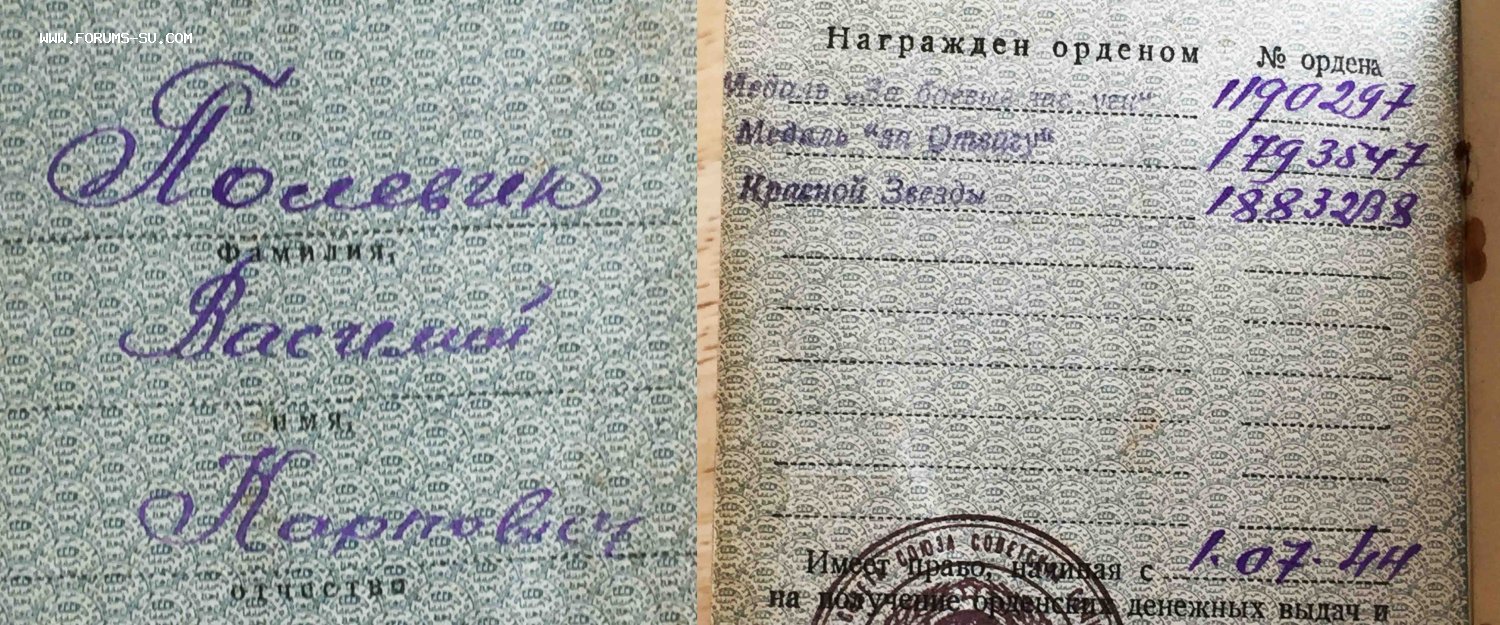 WWW.FORUMS-SU.COM
Полевик
фамилия,
Василий
имя,
Карпович
отчество
Награжден орденом № ордена
Медаль „За боевые зас 1190297
Медаль "за Отвагу" 1793547
Красной Звезды 1883288
СОЮЗА СОВЕТСК
Имеет право, начиная с 1.07.44
на получение орденских денежных выдач и